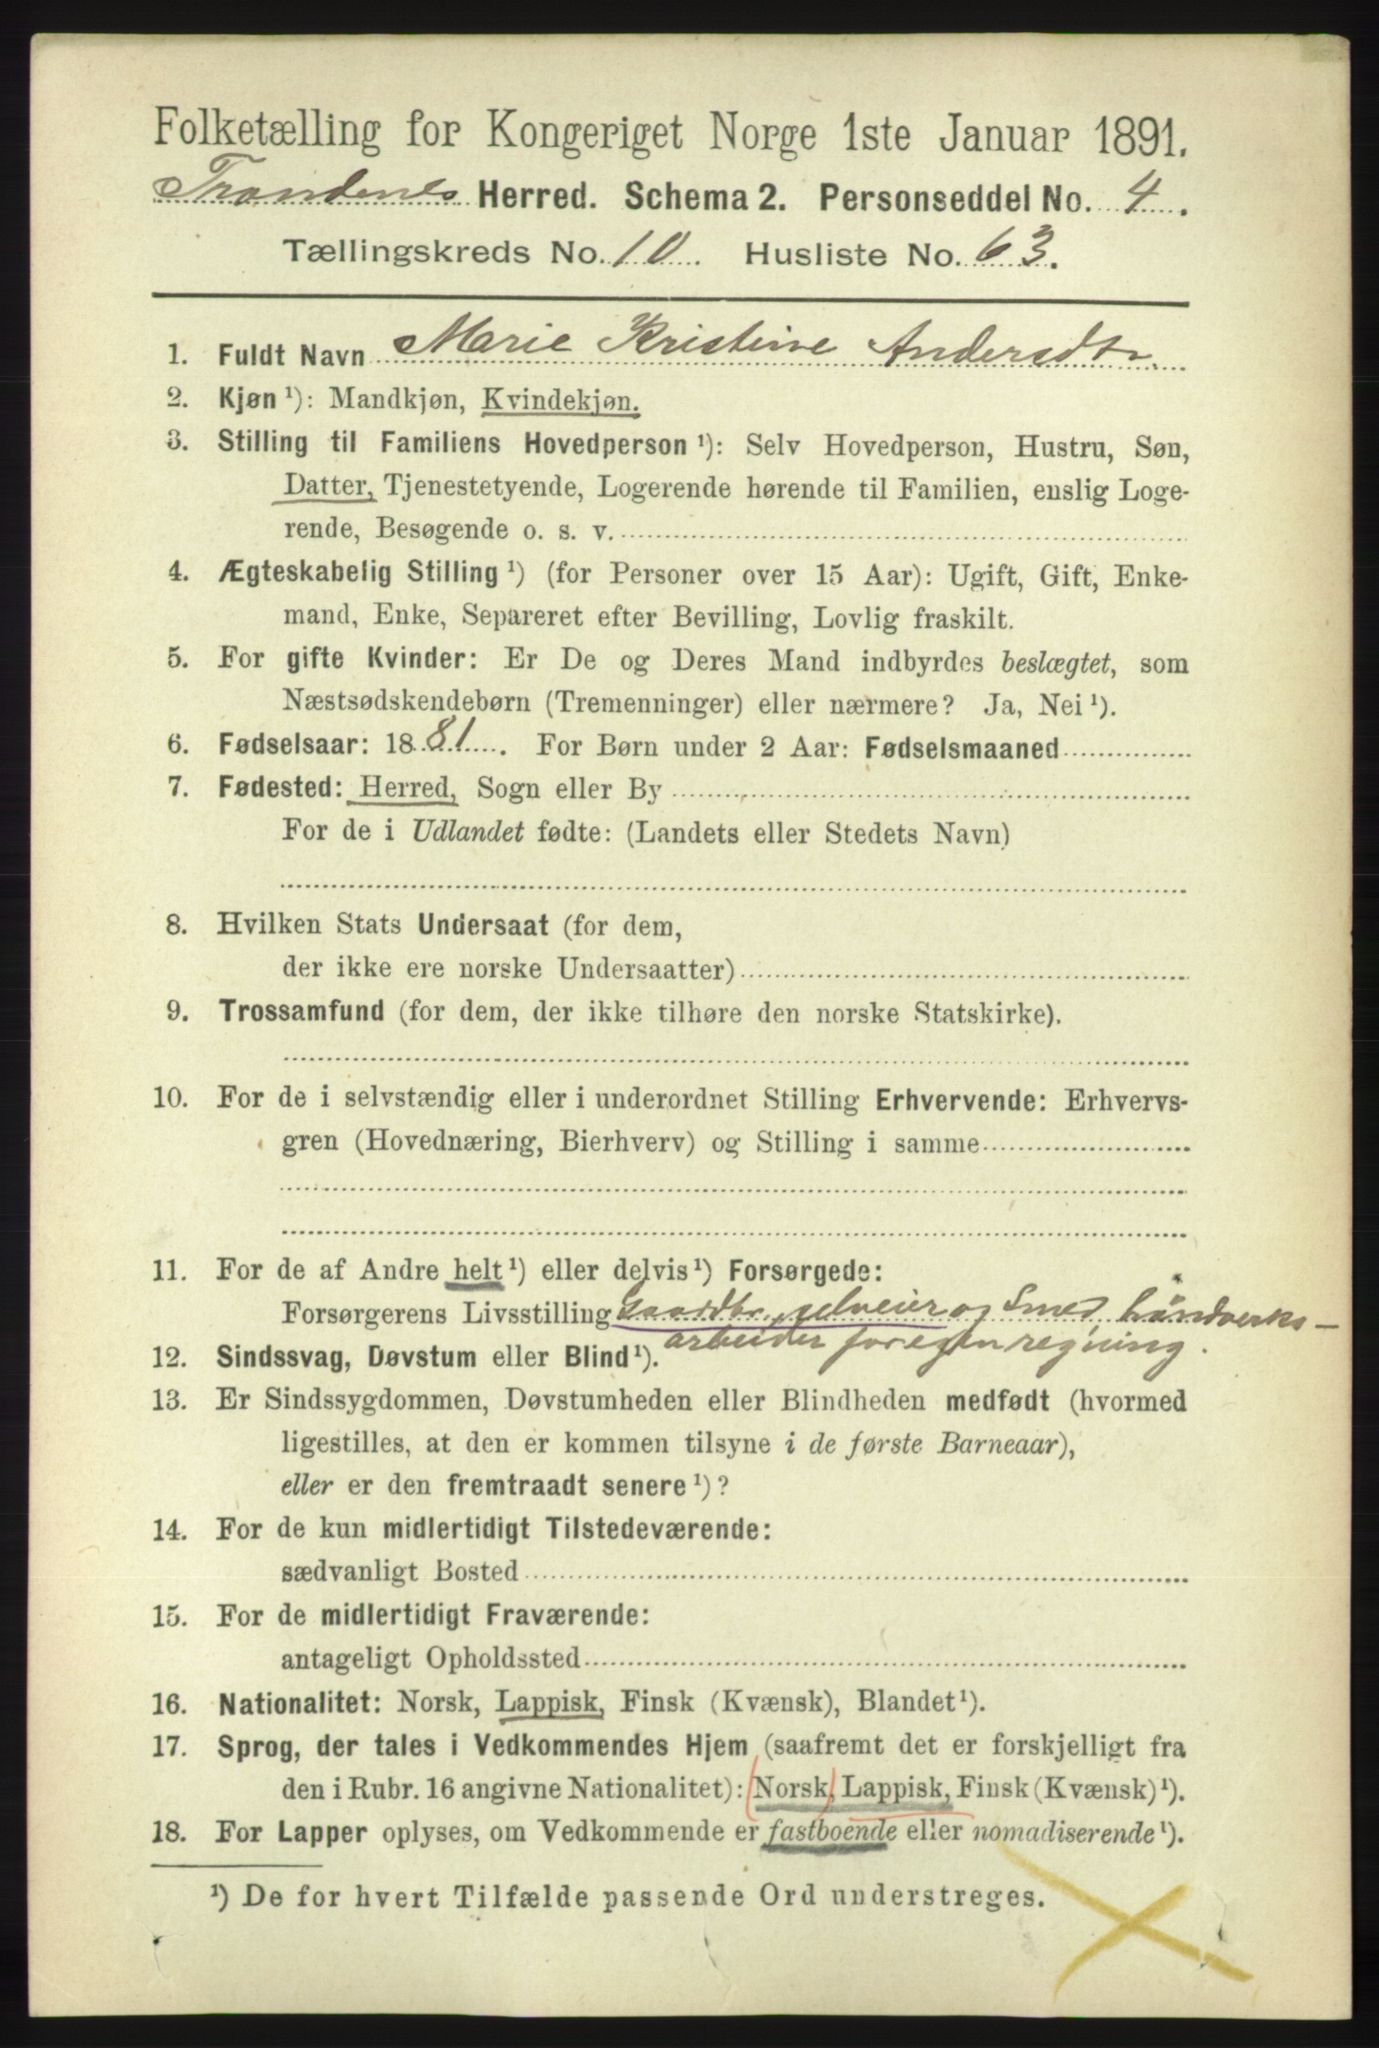 Folketælling for Kongeriget Norge 1ste Januar 1891.
Trondenes Herred. Schema 2. Personseddel No. 4.
Tællingskreds No. 10. Husliste No. 63.
1. Fuldt Navn Marie Kristine Andersdtr.
2. Kjøn ¹): Mandkjøn, Kvindekjøn.
3. Stilling til Familiens Hovedperson ¹): Selv Hovedperson, Hustru, Søn,
Datter, Tjenestetyende, Logerende hørende til Familien, enslig Loge-
rende, Besøgende o. s. v.
4. Ægteskabelig Stilling ¹) (for Personer over 15 Aar): Ugift, Gift, Enke-
mand, Enke, Separeret efter Bevilling, Lovlig fraskilt.
5. For gifte Kvinder: Er De og Deres Mand indbyrdes beslægtet, som
Næstsødskendebørn (Tremenninger) eller nærmere? Ja, Nei ¹).
6. Fødselsaar: 1881. For Børn under 2 Aar: Fødselsmaaned
7. Fødested: Herred, Sogn eller By
For de i Udlandet fødte: (Landets eller Stedets Navn)
8. Hvilken Stats Undersaat (for dem,
der ikke ere norske Undersaatter)
9. Trossamfund (for dem, der ikke tilhøre den norske Statskirke).
10. For de i selvstændig eller i underordnet Stilling Erhvervende: Erhvervs-
gren (Hovednæring, Bierhverv) og Stilling i samme
11. For de af Andre helt ¹) eller delvis ¹) Forsørgede:
Forsørgerens Livsstilling Gaardbr. selveier og Smed håndverks-
arbeider for egen regning.
12. Sindssvag, Døvstum eller Blind ¹).
13. Er Sindssygdommen, Døvstumheden eller Blindheden medfødt (hvormed
ligestilles, at den er kommen tilsyne i de første Barneaar),
eller er den fremtraadt senere ¹)?
14. For de kun midlertidigt Tilstedeværende:
sædvanligt Bosted
15. For de midlertidigt Fraværende:
antageligt Opholdssted
16. Nationalitet: Norsk, Lappisk, Finsk (Kvænsk), Blandet ¹).
17. Sprog, der tales i Vedkommendes Hjem (saafremt det er forskjelligt fra
den i Rubr. 16 angivne Nationalitet): Norsk, Lappisk, Finsk (Kvænsk) ¹).
18. For Lapper oplyses, om Vedkommende er fastboende eller nomadiserende ¹).
¹) De for hvert Tilfælde passende Ord understreges.